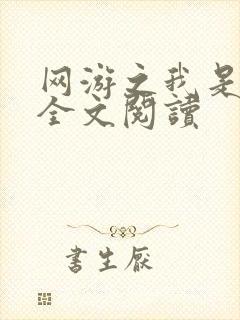 网游之我是
全文閱讀
書生厭